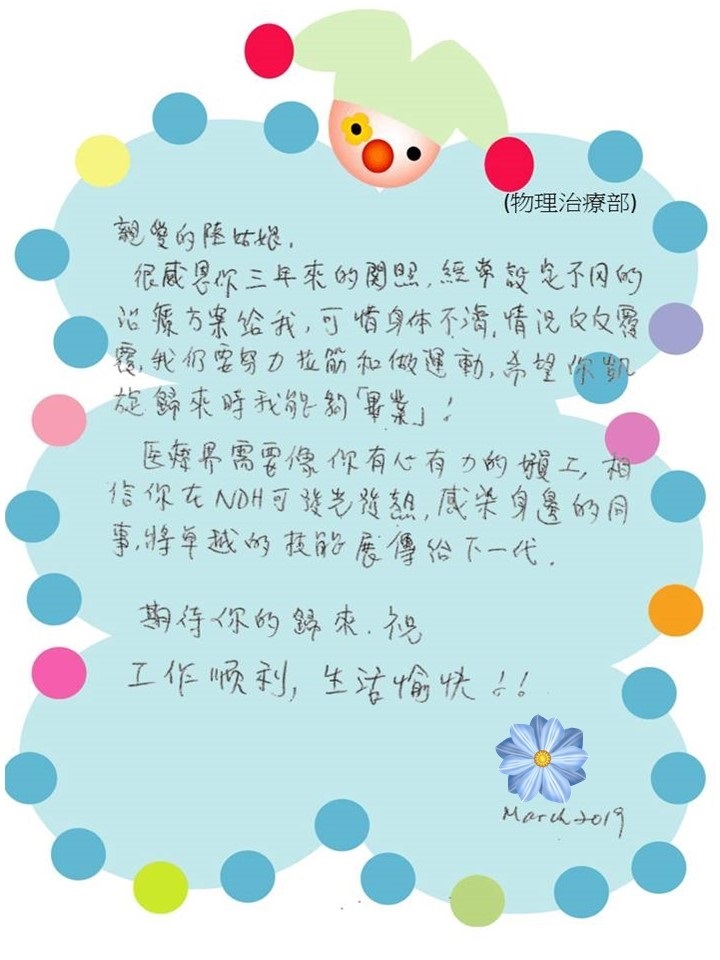 (物理治療部)
親愛的陸姑娘,
很感恩你三年來的関照,經常設定不同的
治療方案給我,可惜身体不濟,情況反反覆
覆,我仍要努力拉筋和做運動,希望你凱
旋歸來時我能夠「畢業」!
医療界需要像你有心有力的員工,相
信你在NDH可發光發熱,感染身邊的同
事,將卓越的技能展傳給下一代.
期待你的歸來.祝
工作順利,生活愉快!!
March 2019